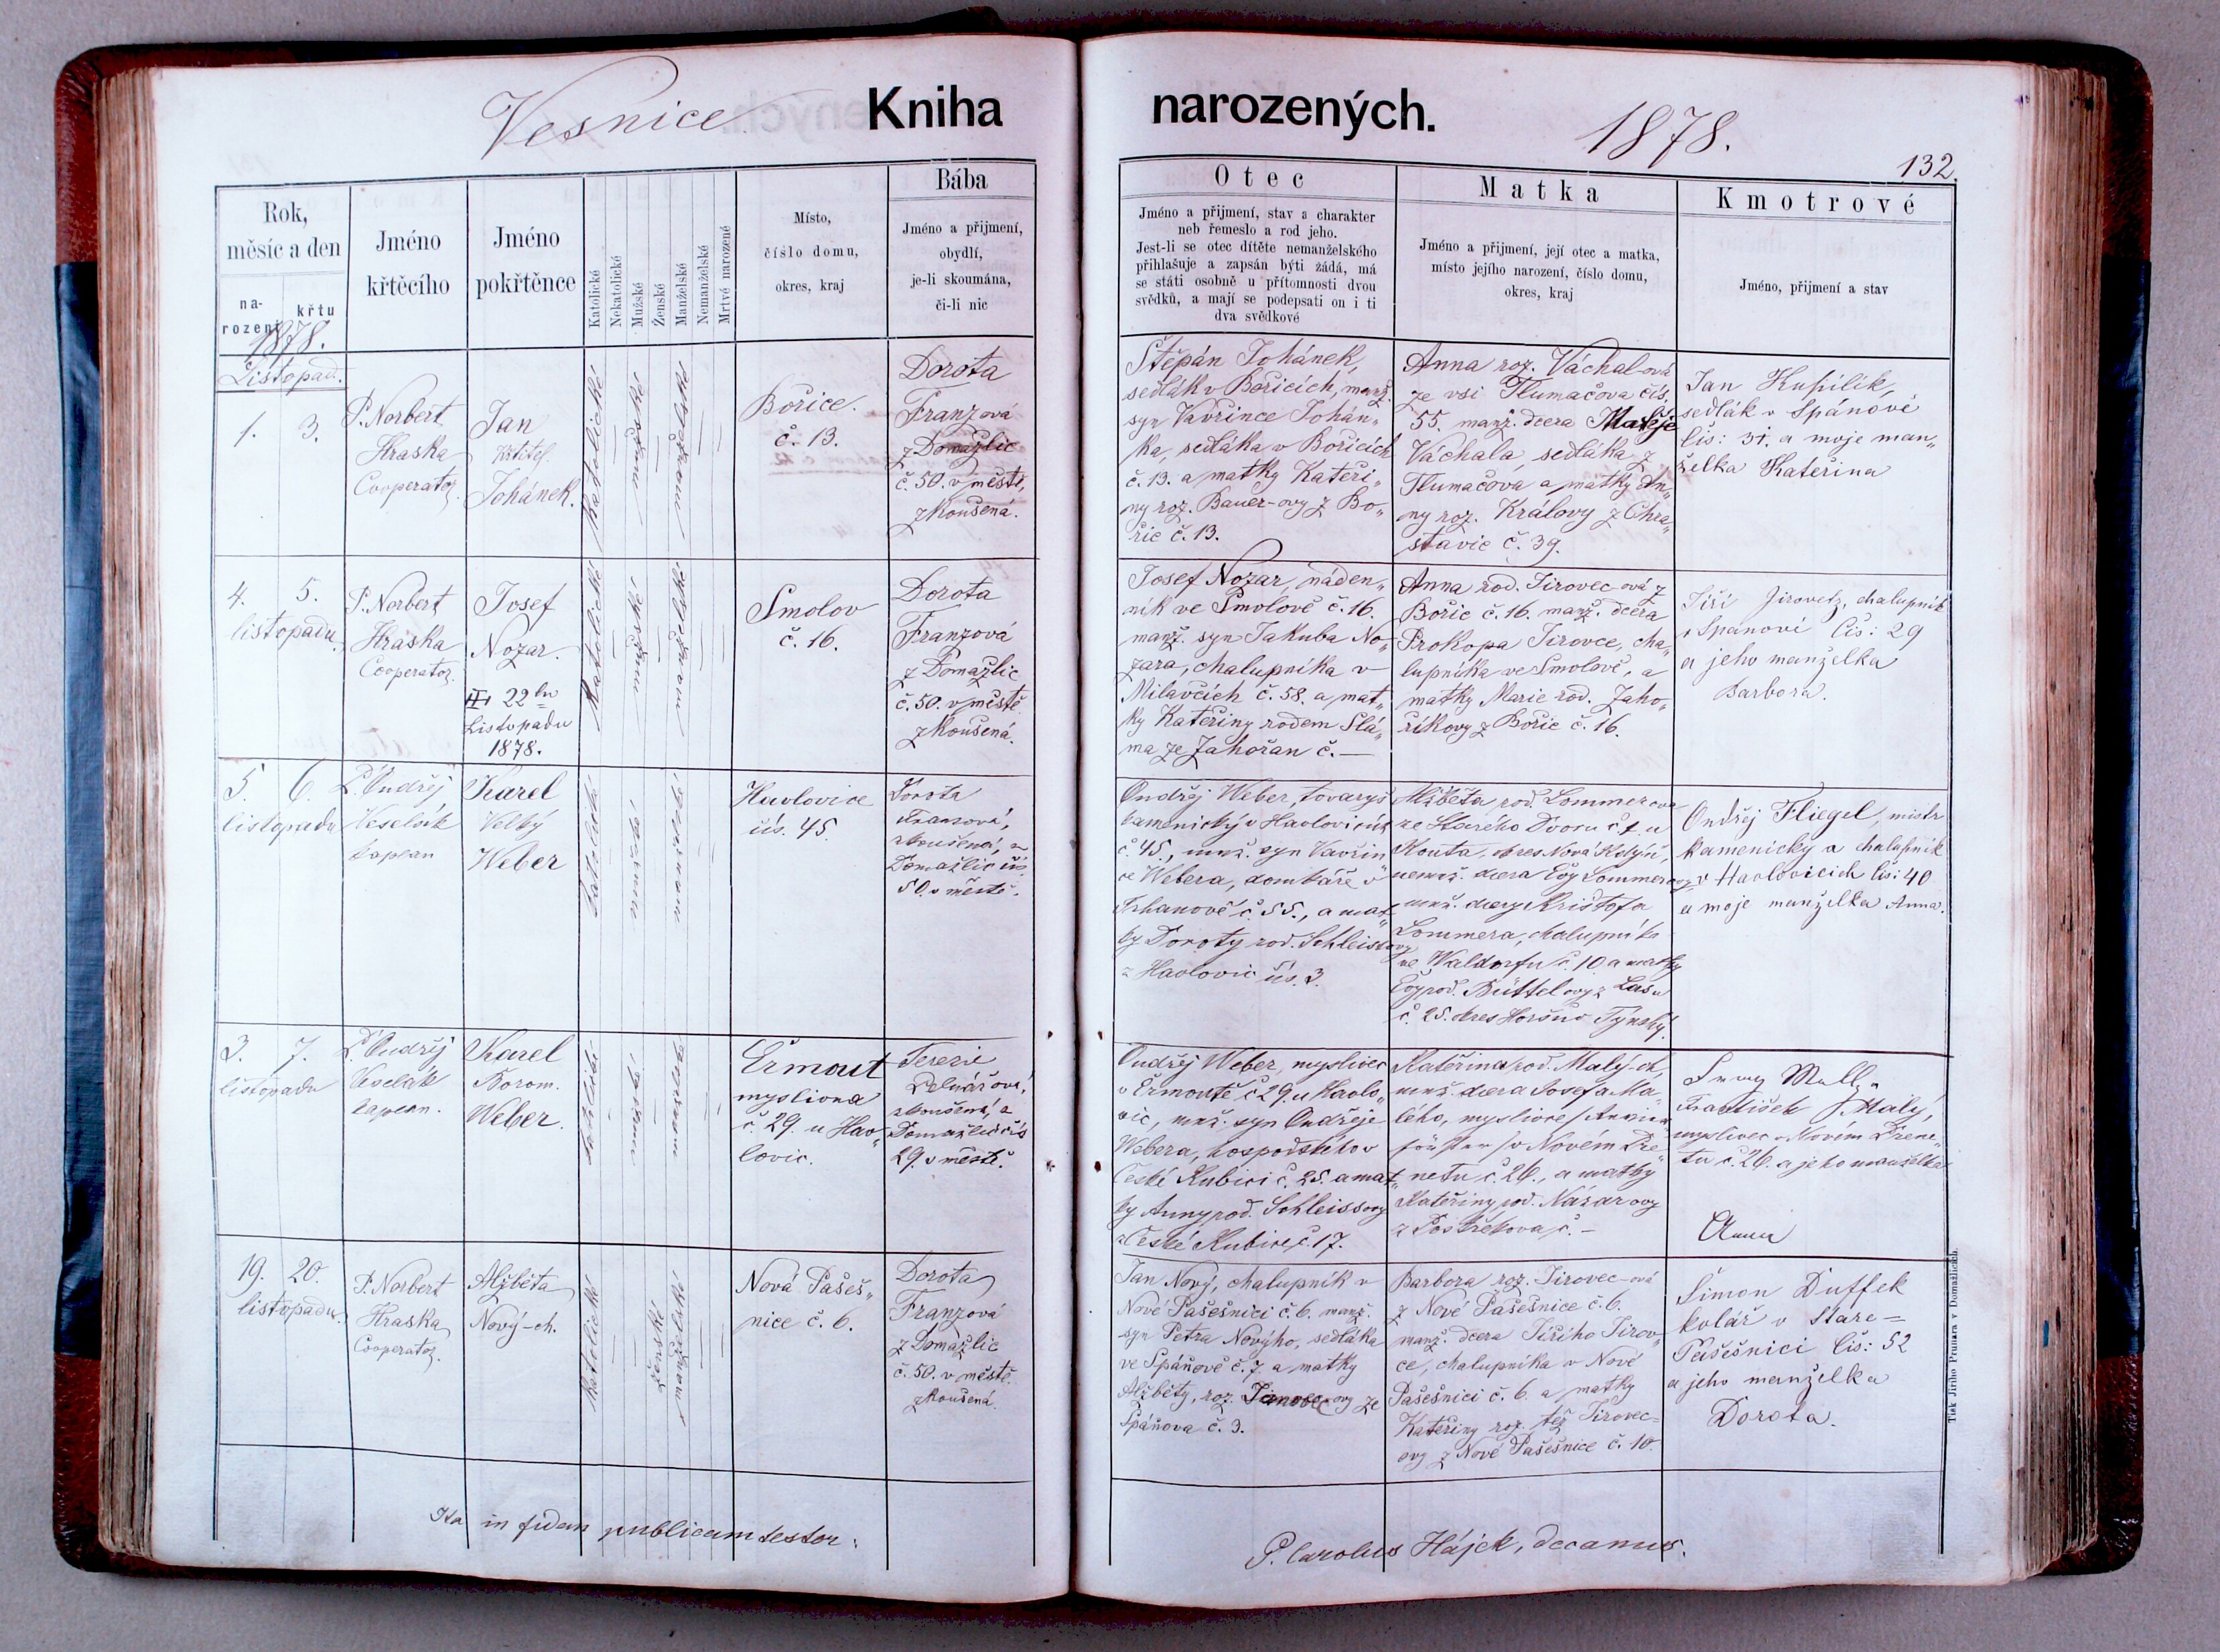 Vesnice
Kniha
narozených.
1878.
132.
Rok,
měsíc a den
na-
rození
křtu
1878.
Jméno
křtěcího
Jméno
pokřtěnce
Katolické
Nekatolické
Mužské
Ženské
Manželské
Nemanželské
Mrtvě narozené
Místo,
číslo domu,
okres, kraj
Bába
Jméno a přijmení,
obydlí,
je-li skoumána,
či-li nic
Otec
Jméno a přijmení, stav a charakter
neb řemeslo a rod jeho.
Jest-li se otec dítěte nemanželského
přihlašuje a zapsán býti žádá, má
se státi osobně u přítomnosti dvou
svědků, a mají se podepsati on i ti
dva svědkové
Matka
Jméno a přijmení, její otec a matka,
místo jejího narození, číslo domu,
okres, kraj
Kmotrové
Jméno, přijmení a stav
Listopad.
1. 3.
P. Norbert
Hraska
Cooperator.
Jan
Křtitel.
Johánek.
Katolické
Mužské
Manželské
Bořice.
č. 13.
Dorota
Franzová
z Domažlic
č. 50. v městě,
zkoušená.
Štěpán Johánek,
sedlák v Bořicích, manž.
syn Vavřince Johán„
ka, sedláka v Bořicích
č. 13. a matky Kateři„
ny roz. Bauer-ovy z Bo„
řic č. 13.
Anna roz. Váchal-ová
ze vsi Tlumačova čís.
55. manž. dcera Matěje
Váchala, sedláka z
Tlumačova a matky An„
ny roz. Královy z Chra„
stavic č. 39.
Jan Kupilík,
sedlák v Spánově
čís: 31. a moje man„
želka Kateřina
4. 5.
listopadu.
P. Norbert
Hraska
Cooperator.
Josef
Nozar.
22ho
Listopadu
1878.
Katolické
Smolov
č. 16.
Dorota
Franzová
z Domažlic
č. 50. v městě
zkoušená.
Josef Nozar, náden„
ník ve Smolově č. 16.
manž. syn Jakuba No„
zara, chalupníka v
Milavčích č. 58. a mat„
ky Kateřiny rodem Slá„
ma ze Zahořan č. —
Anna rod. Jirovec-ová z
Bořic č. 16. manž. dcera
Prokopa Jirovce, cha„
lupníka ve Smolově, a
matky Marie rod. Zaho„
říkovy z Bořic č. 16.
Jiří Jirovetz, chalupník
v Spanovi Čis: 29
a jeho manželka
Barbora.
5. 6.
listopadu
P. Ondřej
Veselák
kaplan
Karel
Velký
Weber
Havlovice
čís. 45.
Dorota
Franzová,
zkoušená, z
Domažlic čís.
50. v městě.
Ondřej Weber, tovaryš
kamenický v Havlovicích
č. 45., manž. syn Vavřin
ce Webera, domkáře v
Trhanově č. 55., a mat„
ky Doroty rod. Schleissovy
z Havlovic čís. 3.
Alžběta rod. Lommerova
ze Starého Dvora č. 1. u
Kouta, okres Nová Kdyň,
nemž. dcera Evy Lommerovy
mnž. dcery Krištofa
Lommera, chalupníka
ve Waldorfu č. 10 a matky
Evy rod. Büttelovy z Lasu
č. 25. okres Horšův Týnský.
Ondřej Fliegel, mistr
kamenický a chalupník
v Havlovicich čis: 40
a moje manželka Anna.
3. 7.
listopadu
P. Ondřej
Veselák
kaplan.
Karel
Borom.
Weber.
Ermout
myslivna
č. 29. u Hav„
lovic.
Terezie
zkoušená, z
Domažlic čís
29. v městě.
Ondřej Weber, myslivec
v Ermoutě č 29. u Havlo„
vic, mnž. syn Ondřeje
Webera, hospodského v
České Kubici č. 25. a mat„
ky Anny rod. Schleissovy
z České Kubice č. 17.
Kateřina rod. Malý-ch,
mnž. dcera Josefa Ma„
lého, myslivce
v Novém Dře„
netu č. 26., a matky
Kateřiny rod. Názarovy
z Postřekova č. —
František Malý,
myslivec v Novím Dřene„
tu č. 26. a jeho manželka
Anna
19. 20.
listopadu.
P. Norbert
Hraska
Cooperator.
Alžběta
Nový-ch.
Katolické
Ženské
Manželské
Nová Pašeš„
nice č. 6.
Dorota
Franzová
z Domažlic
č. 50. v městě.
zkoušená.
Jan Nový, chalupník v
Nové Pašešnici č. 6. manž.
syn Petra Novýho, sedláka
ve Spáňově č. 7 a matky
Alžběty, roz. Jirovec-ovy ze
Spáňova č. 3.
Barbora roz. Jirovec-ová
z Nové Pašešnice č. 6.
manž. dcera Jiřího Jirov„
ce, chalupníka v Nové
Pašešnici č. 6. a matky
Kateřiny roz. též Jirovec-
ovy z Nové Pašešnice č. 10.
Šimon Duffek
kolář v Stare=
Pašešnici čis: 52
a jeho manželka
Dorota.
Ita in fidem publicam testor:
P. Carolus Hájek, decanus.
Tisk Jiřího Prunara v Domažlicích.